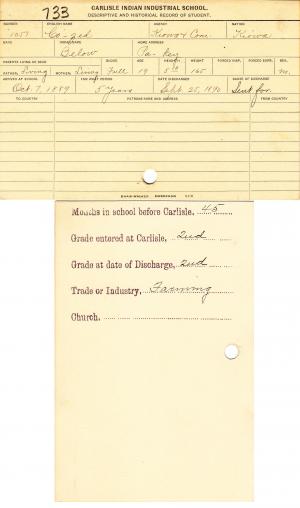 733
CARLISLE INDIAN INDUSTRIAL SCHOOL.
DESCRIPTIVE AND HISTORICAL RECORD OF STUDENT.
NUMBER ENGLISH NAME AGENCY NATION
1051 Co-zed Kiowa & Com. Kiowa
BAND INDIAN NAME HOME ADDRESS
Below Pa-key
PARENTS LIVING OR DEAD BLOOD AGE HEIGHT WEIGHT FORCED INSP. FORCED EXPR. SEX
FATHER, Living MOTHER, Living Full 19 165 M.
ARRIVED AT SCHOOL FOR WHAT PERIOD DATE DISCHARGED CAUSE OF DISCHARGE
Oct. 7, 1889 5 Years Sept. 25, 1890 Sent for
TO COUNTRY PATRONS NAME AND ADDRESS FROM COUNTRY
Months in school before Carlisle, 45
Grade entered at Carlisle, 2nd
Grade at date of Discharge, 2nd
Trade or Industry, Farming
Church,